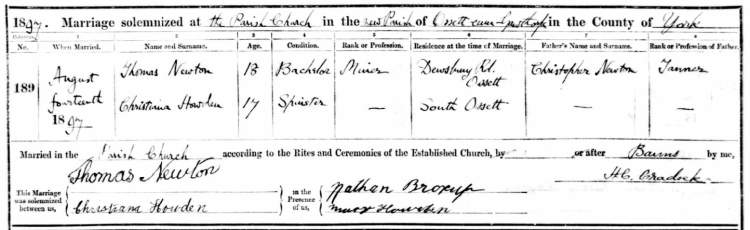 1897. Marriage solemnized at the Parish Church in the new Parish of Ossett cum Gawthorpe in the County of York
1 2 3 4 5 6 7 8
No. When Married. Name and Surname. Age. Condition. Rank or Profession. Residence at the time of Marriage. Father's Name and Surname. Rank or Profession of Father.
189 August Thomas Newton 18 Bachelor Miner Dewsbury Rd. Ossett Christopher Newton Tanner
fourteenth Christiana Howden 17 Spinster — South Ossett — —
1897
Married in the Parish Church according to the Rites and Ceremonies of the Established Church, by or after Banns by me,
Thomas Newton Nathan H.C. Cradock
This Marriage was solemnized between us, Christiana Howden in the Presence of us, Mary Howden